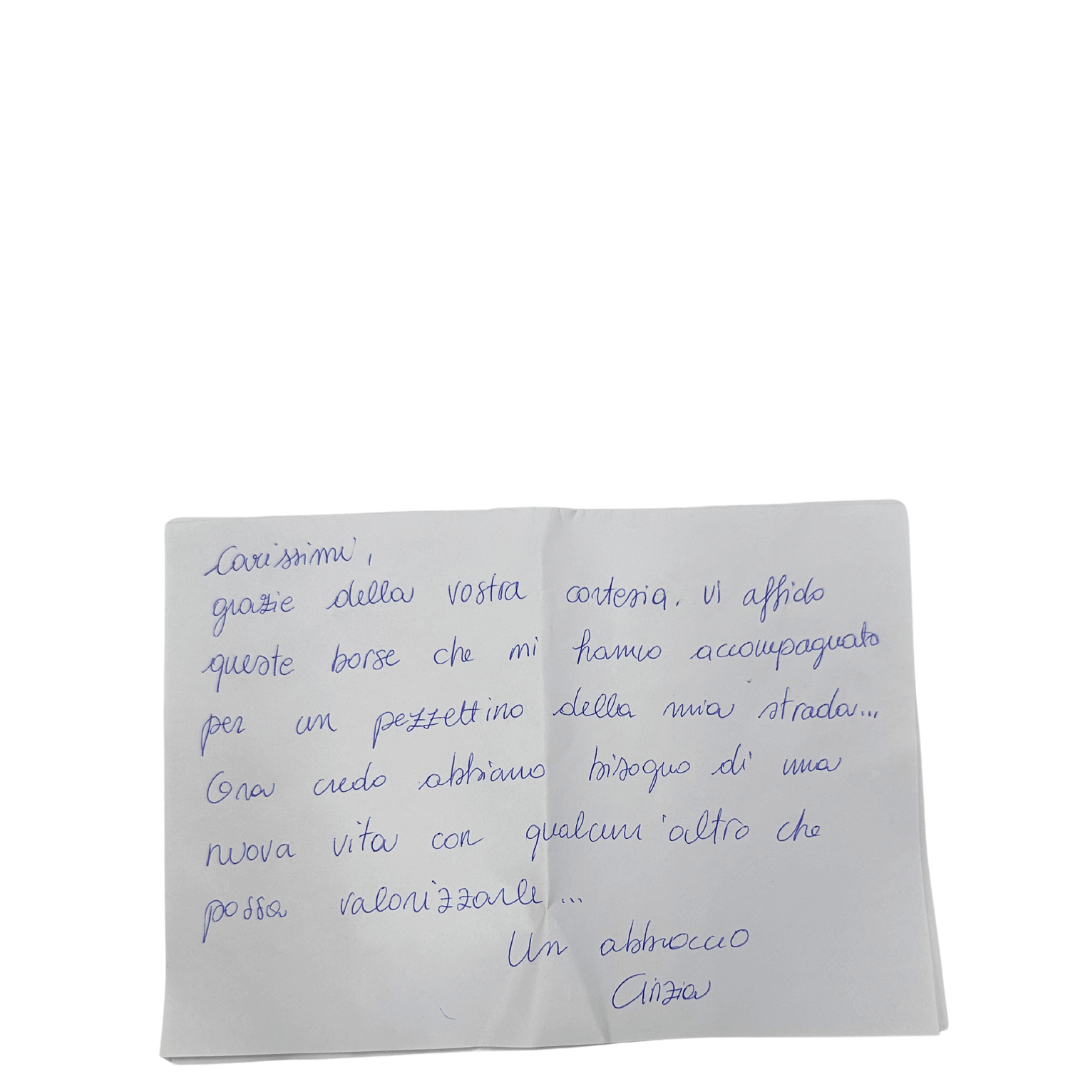 Carissimi,
grazie della vostra cortesia. Vi affido
queste borse che mi hanno accompagnato
per un pezzettino della mia strada...
Ora credo abbiano bisogno di una
nuova vita con qualcun'altro che
possa valorizzarle...
Un abbraccio
Cinzia